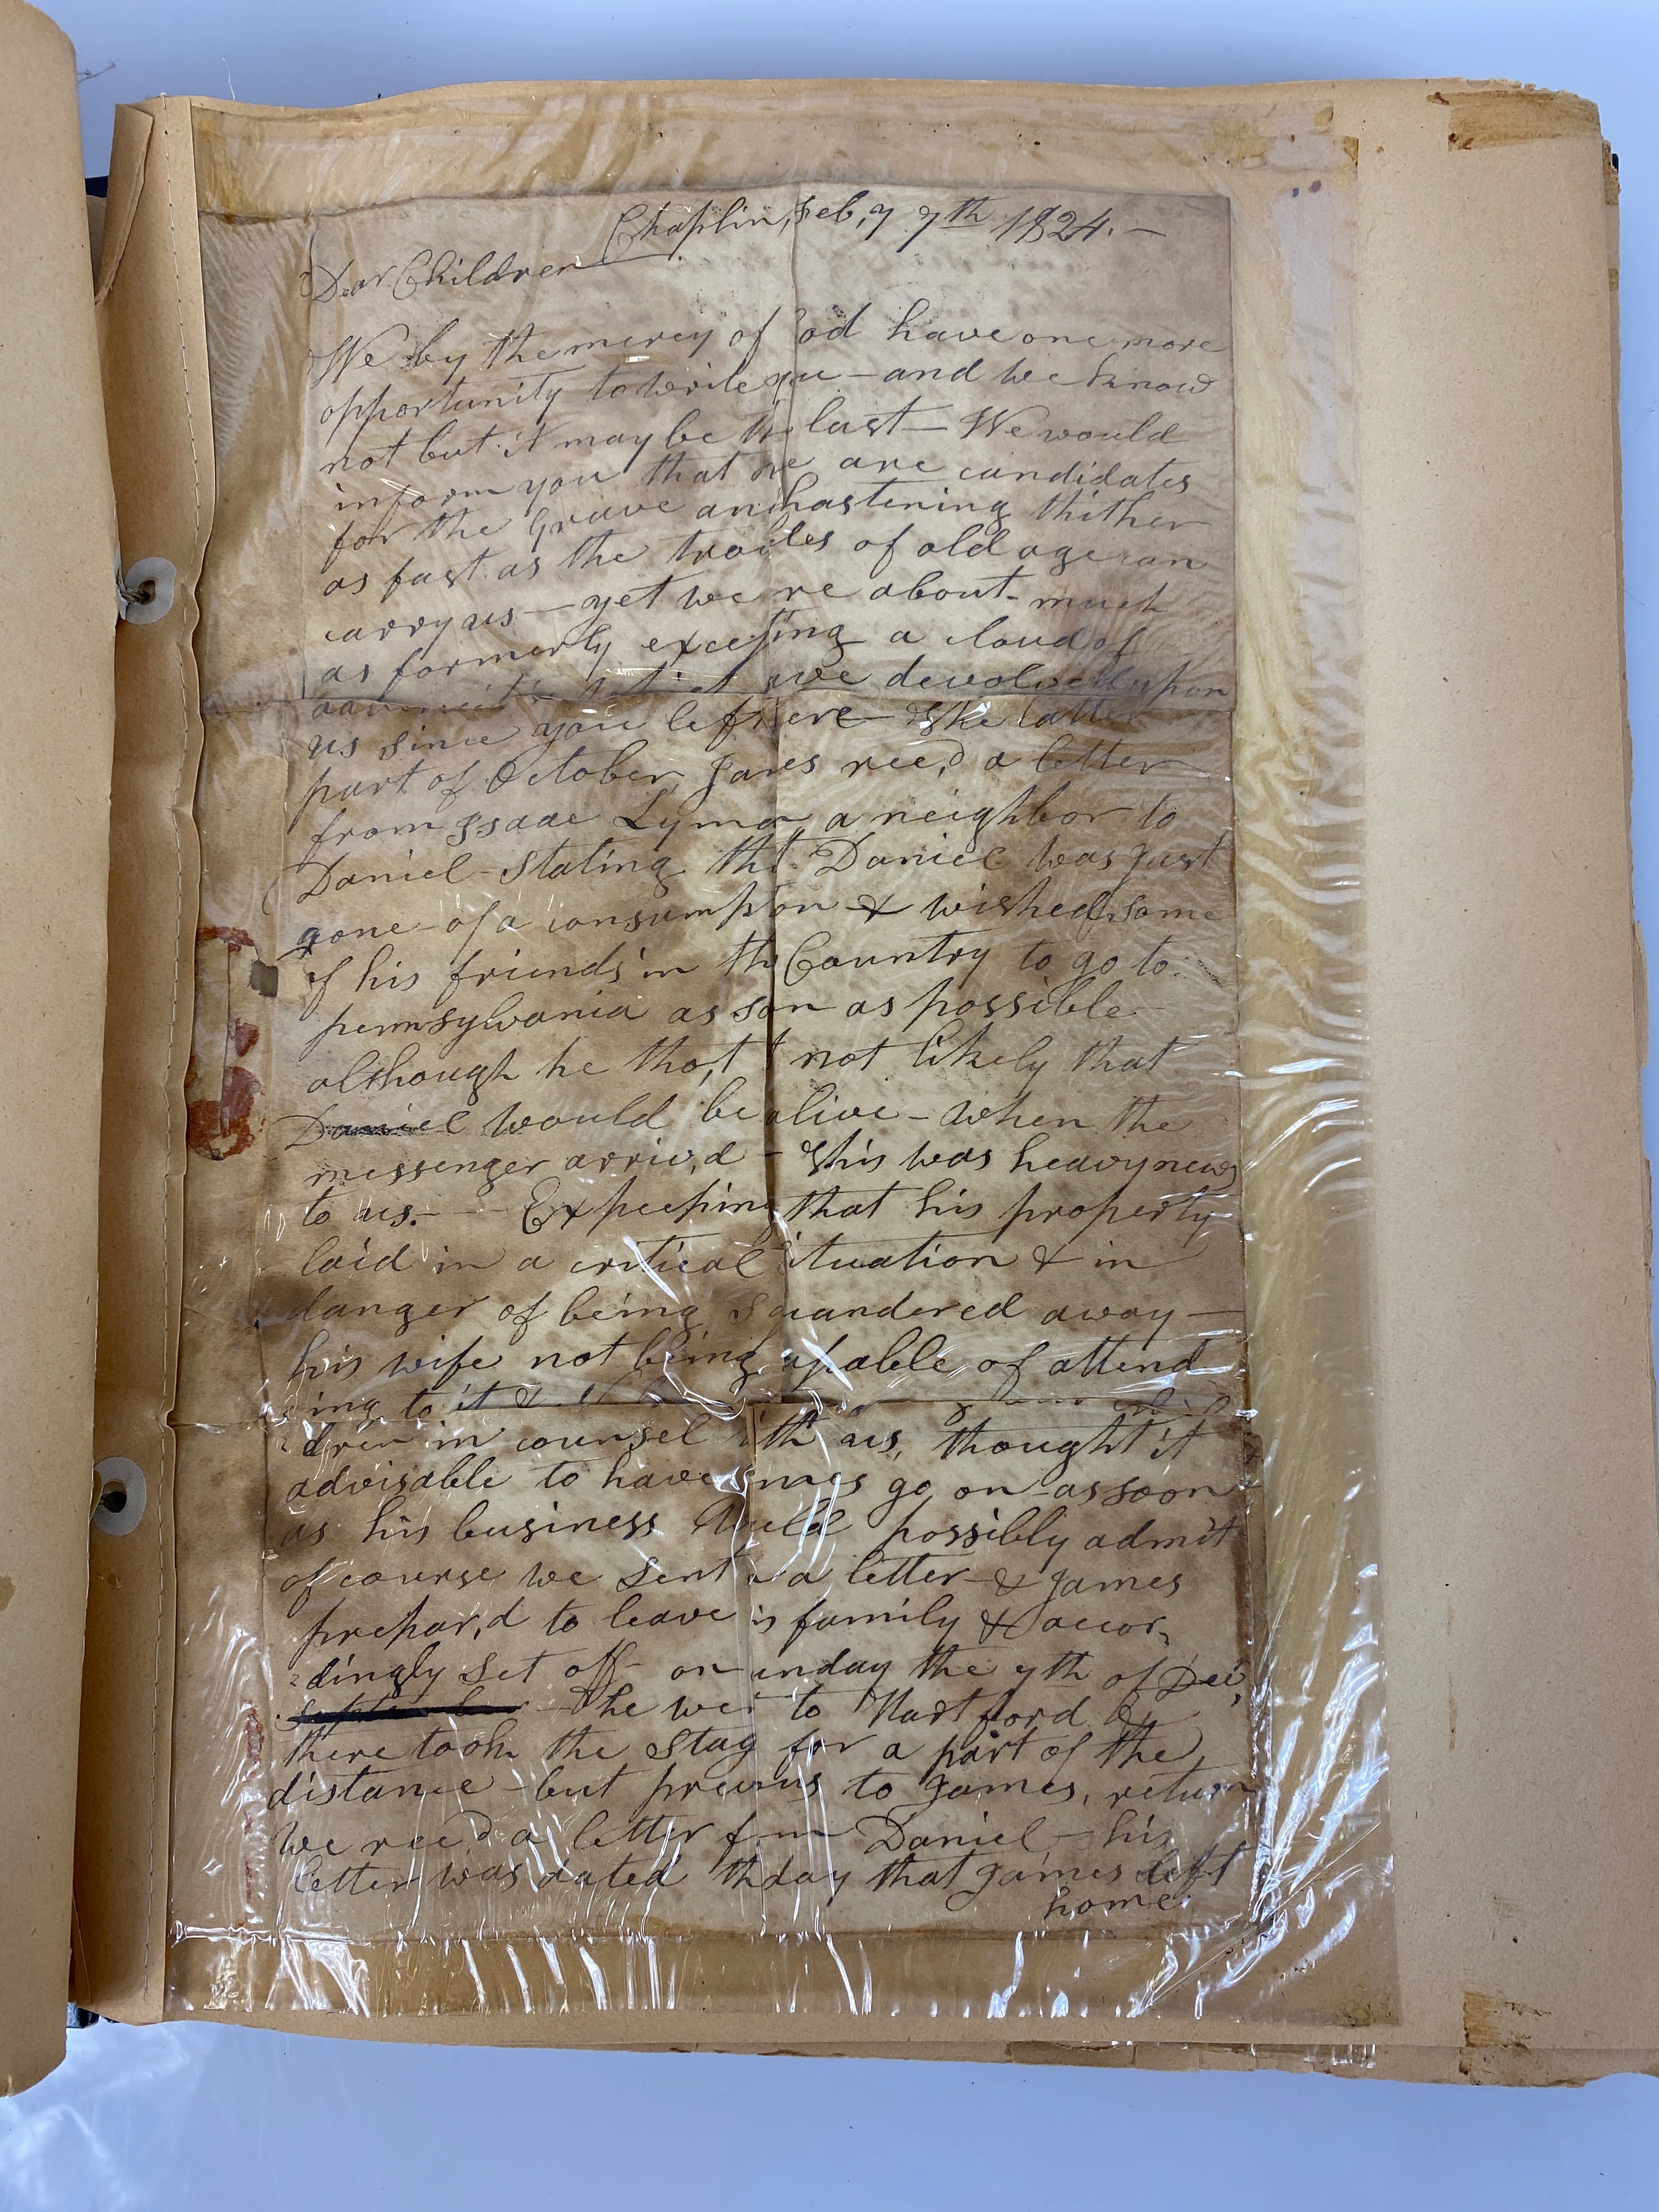 Chaplin, Feb,y 7th 1824. —
Dear Children
We by the mercy of God have one more
opportunity to write you — and we know
not but it may be the last — We would
inform you that we are candidates
for the Grave and hastening thither
as fast as the troubles of old age can
carry us — yet we are about as much
as formerly excepting a load of
have devolved upon
us since you left here — The latter
part of October James rec,d a letter
from Isaac Lyman a neighbor to
Daniel — Stating that Daniel was just
gone of a consumption & wished some
of his friends in this Country to go to
pennsylvania as soon as possible
although he tho,t it not likely that
Daniel would be alive — when the
messenger arriv,d — This was heavy news
to us. — Expecting that his property
laid in a critical situation & in
danger of being squandered away —
his wife not being capable of attend
ing to it &
dren in counsel with us, thought it
advisable to have James go on as soon
as his business would possibly admit
of course we sent a letter & James
prepar,d to leave his family & accor,
dingly set off on Sunday the 7th of Dec,
he went to Hartford &
there took the Stage for a part of the
distance — but previous to James, return
we rec,d a letter from Daniel — his
letter was dated the day that James left
home